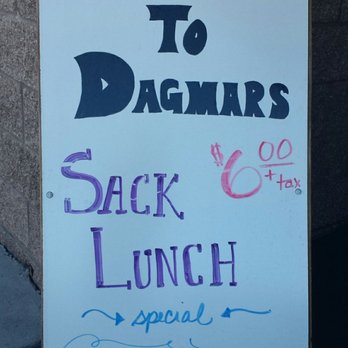 To
DAGMARS
SACK
$6.00
+ tax
LUNCH
special